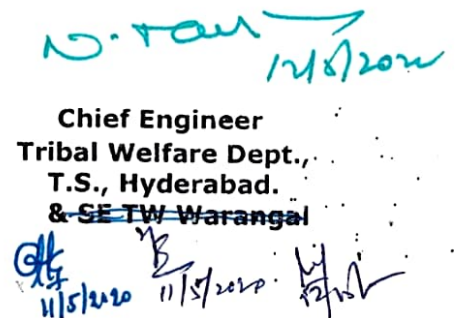 12/5/2020
Chief Engineer
Tribal Welfare Dept.,
T.S., Hyderabad.
& SE TW Warangal
11/5/2020 11/5/2020